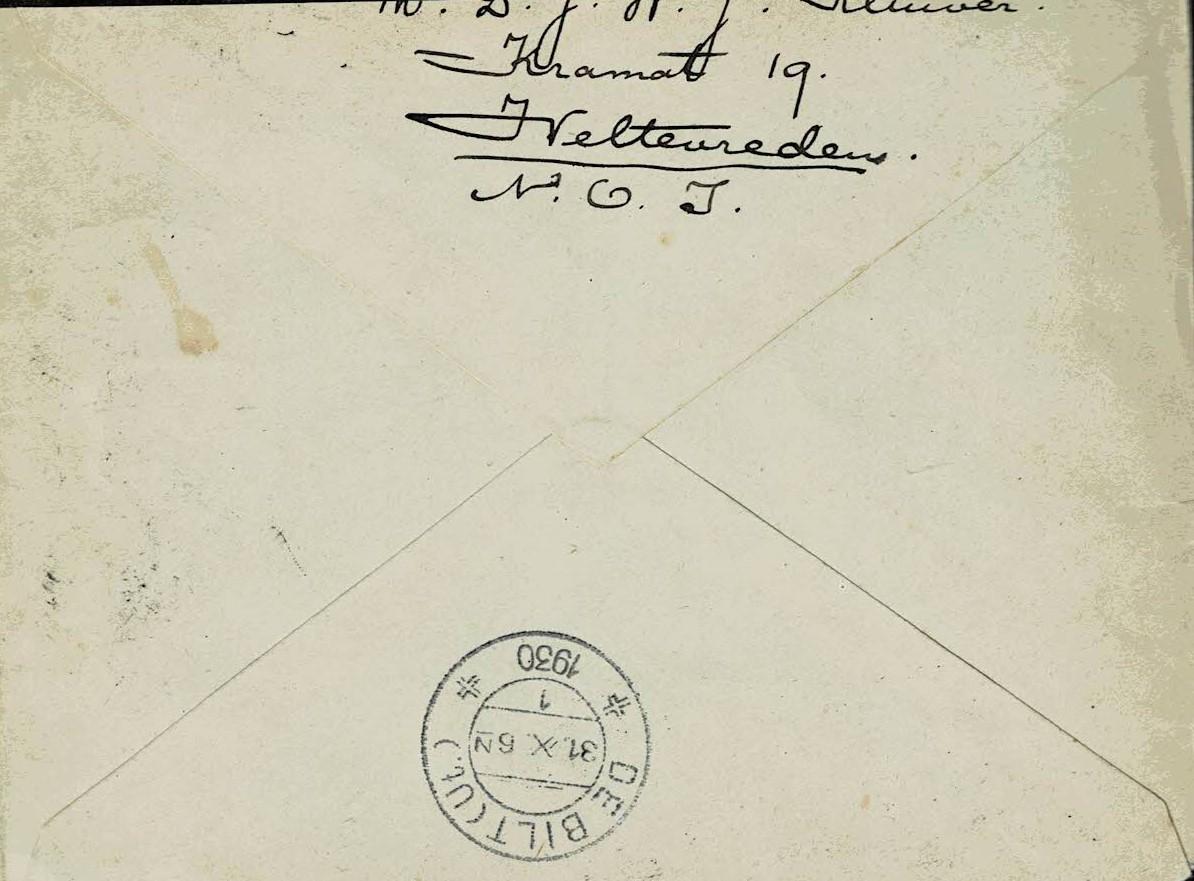 Kramat 19.
Weltevreden.
N. O. I.
DE BILT (Ut.)
31. X.
1
1930